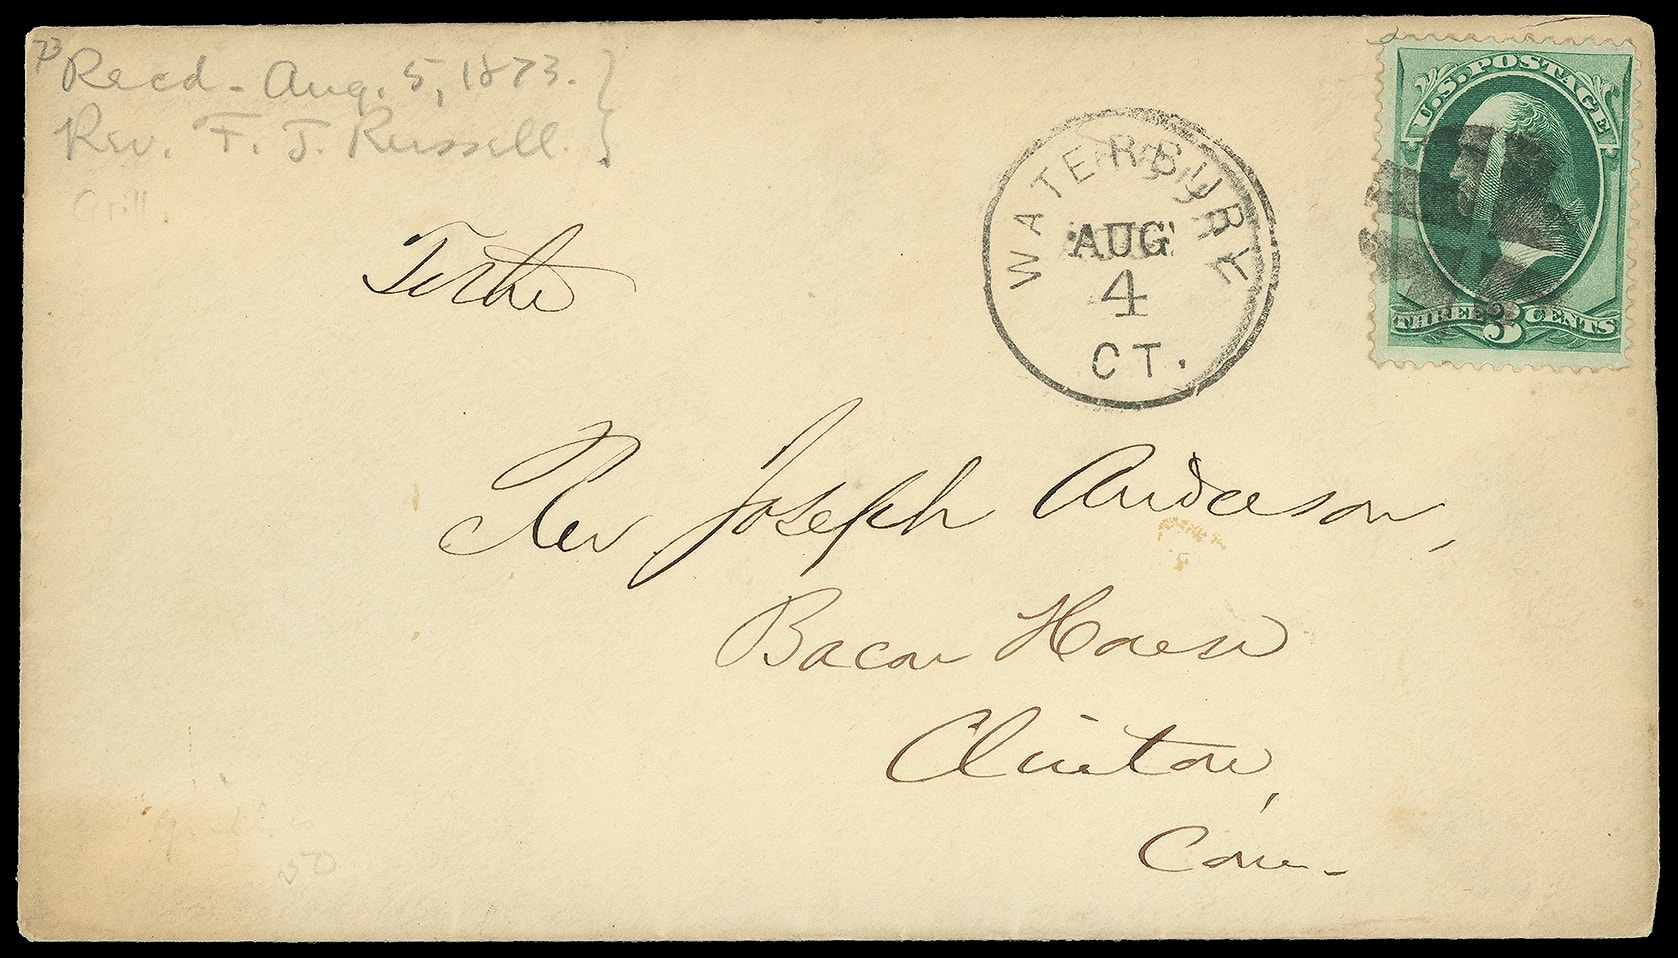 73
Recd - Aug. 5, 1873.
Rev. F. J. Russell.
Grill
WATERBURY
AUG
4
CT.
U.S. POSTAGE
THREE 3 CENTS
Rev Joseph Anderson,
Bacon House
Clinton,
Conn.